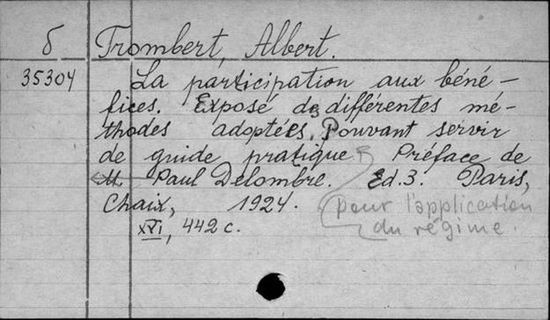 б Trombert, Albert.
35304 La participation aux béné-
fices. Exposé des différentes mé-
thodes adoptées. Pouvant servir
de guide pratique Préface de
M Paul Delombre. Ed.3. Paris,
Chaix, 1924.
pour l'application
du régime.
XVI, 442 c.